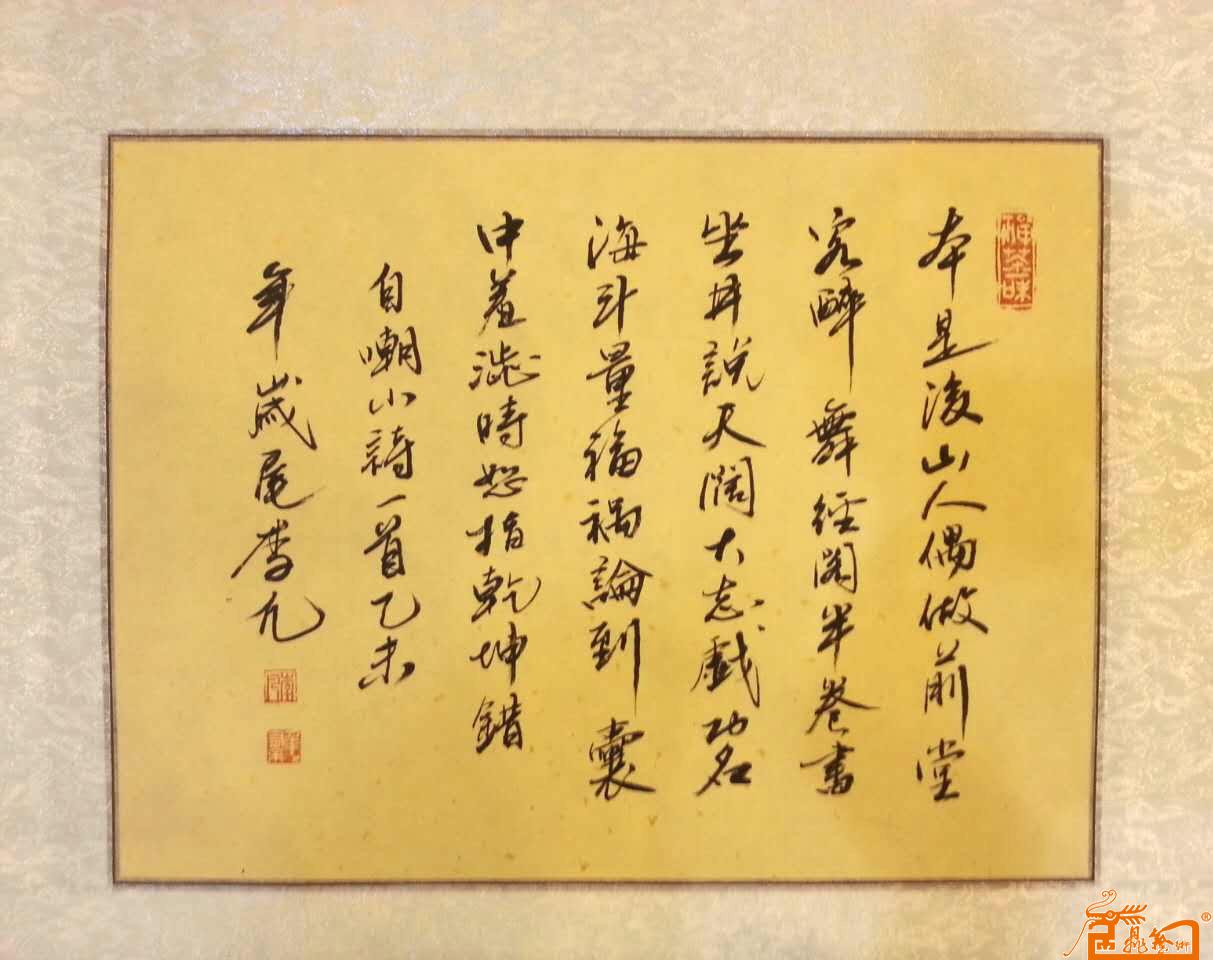 禪茶一味
本是後山人偶做前堂
客醉舞經閣半卷書
坐井說天闊大志戲功名
海斗量福禍論到囊
中羞澁時怒指乾坤錯
自嘲小詩一首乙未
年歲尾李凡